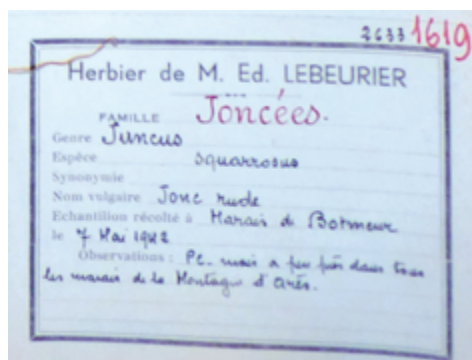 2633 1619
Herbier de M. Ed. LEBEURIER
FAMILLE Joncées.
Genre Juncus
Espèce squarrosus
Synonymie
Nom vulgaire Jonc rude
Echantillon récolté à Marais de Botmeur
le 7 Mai 1922
Observations : Pc. mais a peu près dans tous
les marais de la Montagne d'Arrés.